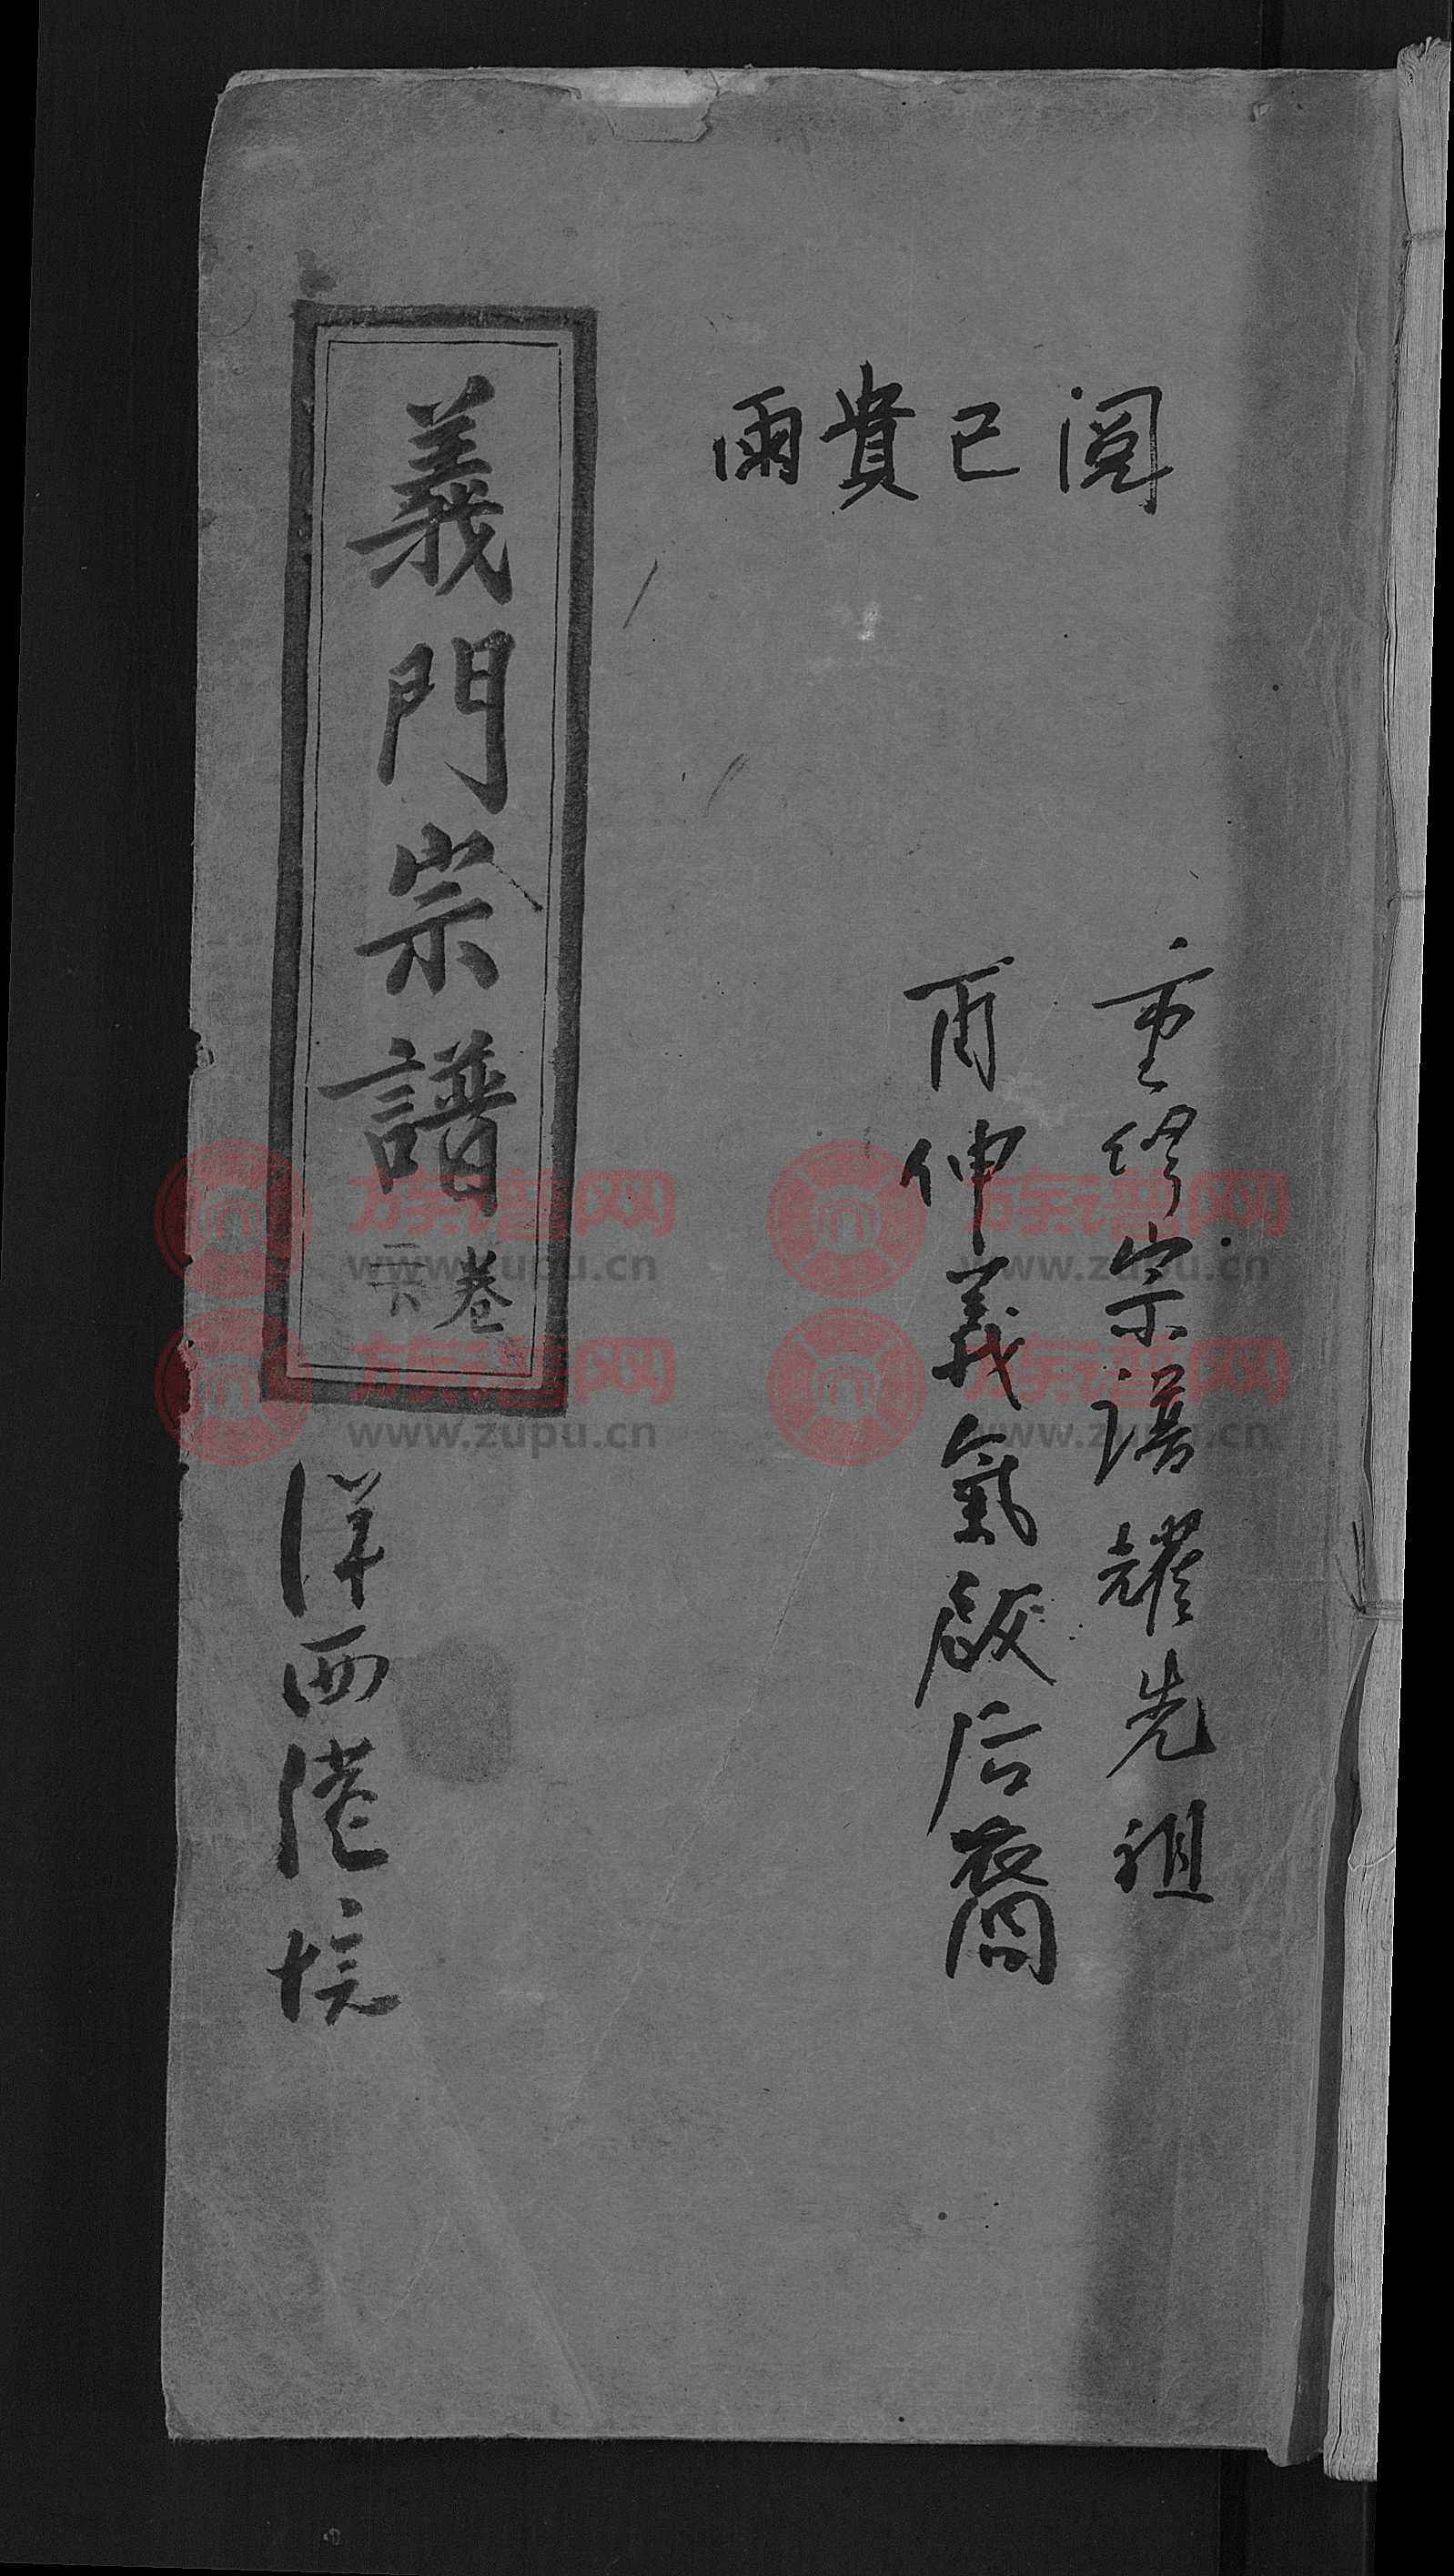 雨貴已阅
重修宗谱耀先祖
再伸義氣啟后裔
義門宗譜
卷
洋西港垸
族谱网
www.zupu.cn
族谱网
www.zupu.cn
族谱网
www.zupu.cn
族谱网
www.zupu.cn